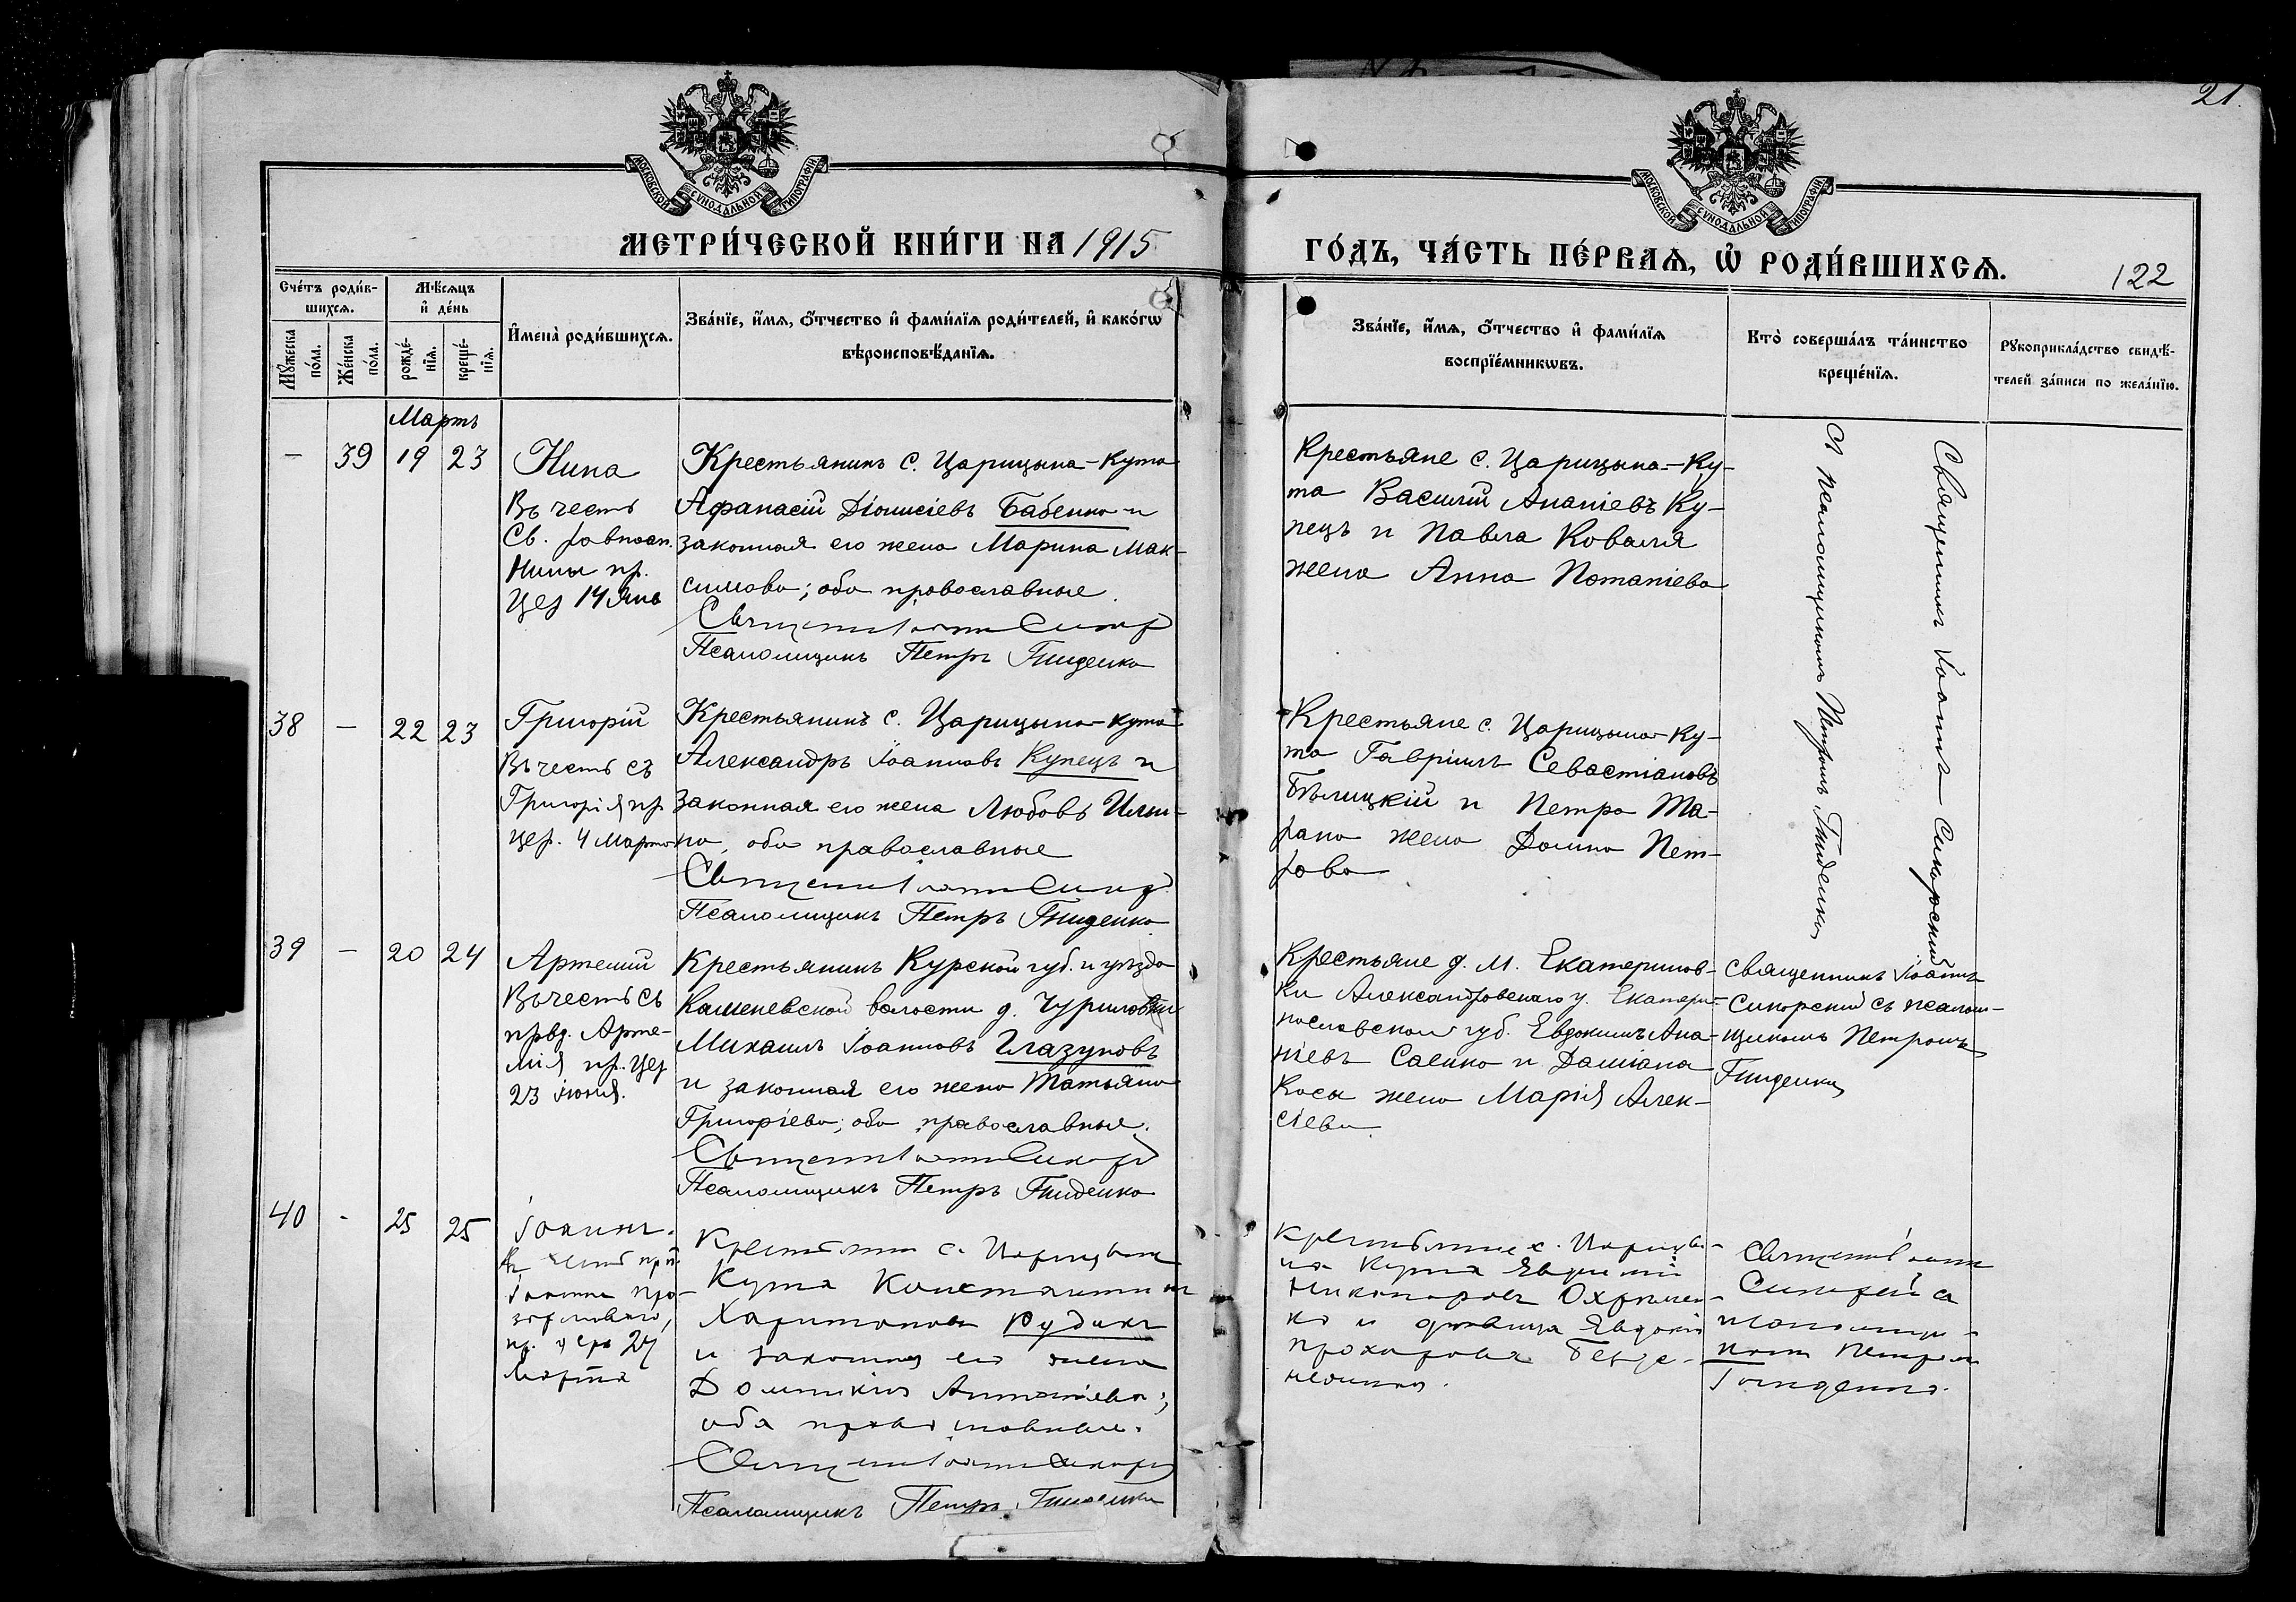 21.
МОСКОВСКОЙ СѴНОДАЛЬНОЙ ТИПОГРАФІИ
МОСКОВСКОЙ СѴНОДАЛЬНОЙ ТИПОГРАФІИ
МЕТРИ́ЧЕСКОЙ КНИ́ГИ НА 1915
ГО́ДЪ, ЧА́СТЬ ПЕ́РВАЯ, Ѡ҆ РОДИ́ВШИХСѦ.
122
Сче́тъ роди́в-
шихсѧ.
Мꙋ́жеска
по́ла.
Же́нска
по́ла.
Мѣ́сѧцъ
и҆ де́нь
рожде́-
нїѧ.
креще́-
нїѧ.
И҆мена̀ роди́вшихсѧ.
Зва́нїе, и҆́мѧ, ѻ҆́тчество и҆ фами́лїѧ роди́телей, и҆ како́гѡ
вѣроисповѣ́данїѧ.
Зва́нїе, и҆́мѧ, ѻ҆́тчество и҆ фами́лїѧ
воспрїе́мникѡвъ.
Кто̀ соверша́лъ та́инство
креще́нїѧ.
Рꙋкоприкла́дство свидѣ́-
телей за́писи по жела́нїю.
Мартъ
— 39 19 23
Нина
Въ честь
Св. равноап.
Нины пр.
Цер 14 Янв
Крестьянинъ с. Царицына-Кута
Афанасій Діонисіевъ Бабенко и
законная его жена Марина Мак-
симова; оба православные.
Псаломщикъ Петръ Гниденко
Крестьяне с. Царицына-Ку-
та Василій Ананіевъ Ку-
пецъ и Павла Коваля
жена Анна Потапіева
Священникъ Іоаннъ Сикорскій
съ псаломщикомъ Петромъ Гниденко
38 — 22 23
Григорій
Въ честь св
Григорія пр.
цер. 4 Марта
Крестьянинъ с. Царицына-Кута
Александръ Іоанновъ Купецъ и
законная его жена Любовь Ильи-
на, оба православные
Псаломщикъ Петръ Гниденко
Крестьяне с. Царицына-Ку-
та Гавріилъ Севастіановъ
Бѣлицкій и Петра Та-
рана жена Домна Пет-
рова
39 — 20 24
Артемій
Въ честь св
првд. Арте-
мія пр. Цер
23 Іюня.
Крестьянинъ Курской губ. и уѣзда
Каменевской волости д. Чуриловки
Михаилъ Іоанновъ Глазуновъ
и законная его жена Татьяна
Григоріева; оба православные.
Псаломщикъ Петръ Гниденко
Крестьяне д. М. Екатеринов-
ки Александровскаго у. Екатери-
нославской губ. Евдокимъ Ана-
ніевъ Саенко и Даміана
Коса жена Марія Алек-
сіева.
Священникъ Іоаннъ
Сикорскій съ псалом-
щикомъ Петромъ
Гниденко
40 - 25 25
Іоаннъ.
Въ честь прп.
Іоанна про-
зорливаго,
пр. цер 27
Марта
Крестьянин с. Царицына
Кута Константинъ
Харитонов Рудикъ
и законная его жена
Домникія Антоніева;
оба православные.
Псаломщикъ Петръ Гниденко
Крестьяне с. Царицы-
на Кута Евфимій
Никифоров Охрімен-
ко и дѣвица Явдокія
Прохорова
Священ Іоанн
Сикорскій съ
псаломщи-
комъ Петромъ
Гниденко.